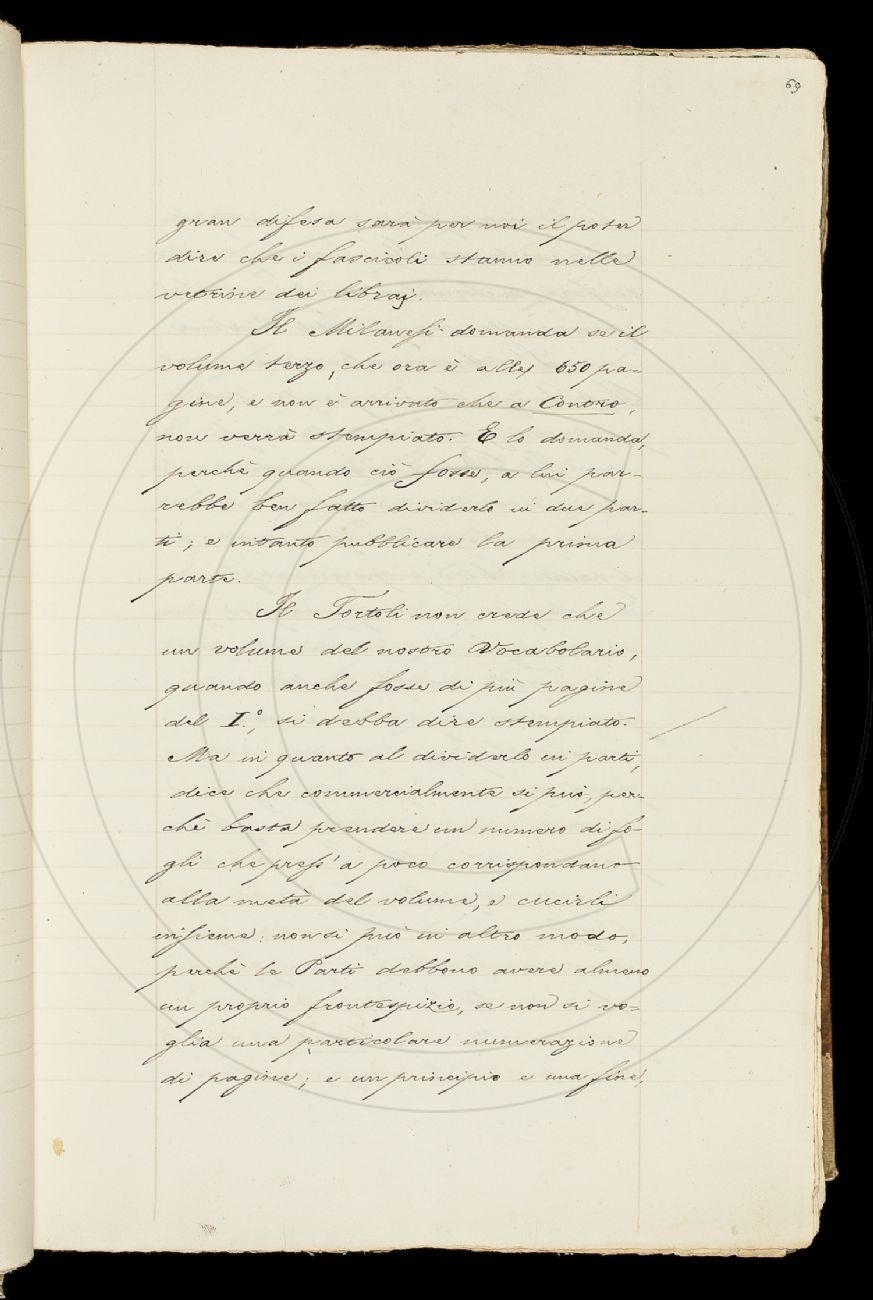 69
gran difesa sarà per noi il poter
dire che i fascicoli stanno nelle
vetrine dei libraj.
Il Milanesi domanda se il
volume terzo, che ora è alle 650 pa-
gine, e non è arrivato che a Contro,
non verrà stempiato. E lo domanda,
perchè quando ciò fosse, a lui par-
rebbe ben fatto dividerlo in due par-
ti; e intanto pubblicare la prima
parte.
Il Tortoli non crede che
un volume del nostro Vocabolario,
quando anche fosse di più pagine
del I.º, si debba dire stempiato.
Ma in quanto al dividerlo in parti,
dice che commercialmente si può, per-
chè basta prendere un numero di fo-
gli che press'a poco corrispondano
alla metà del volume, e cucirli
insieme: non si può in altro modo,
perchè le Parti debbono avere almeno
un proprio frontespizio, se non si vo-
glia una particolare numerazione
di pagine; e un principio e una fine,